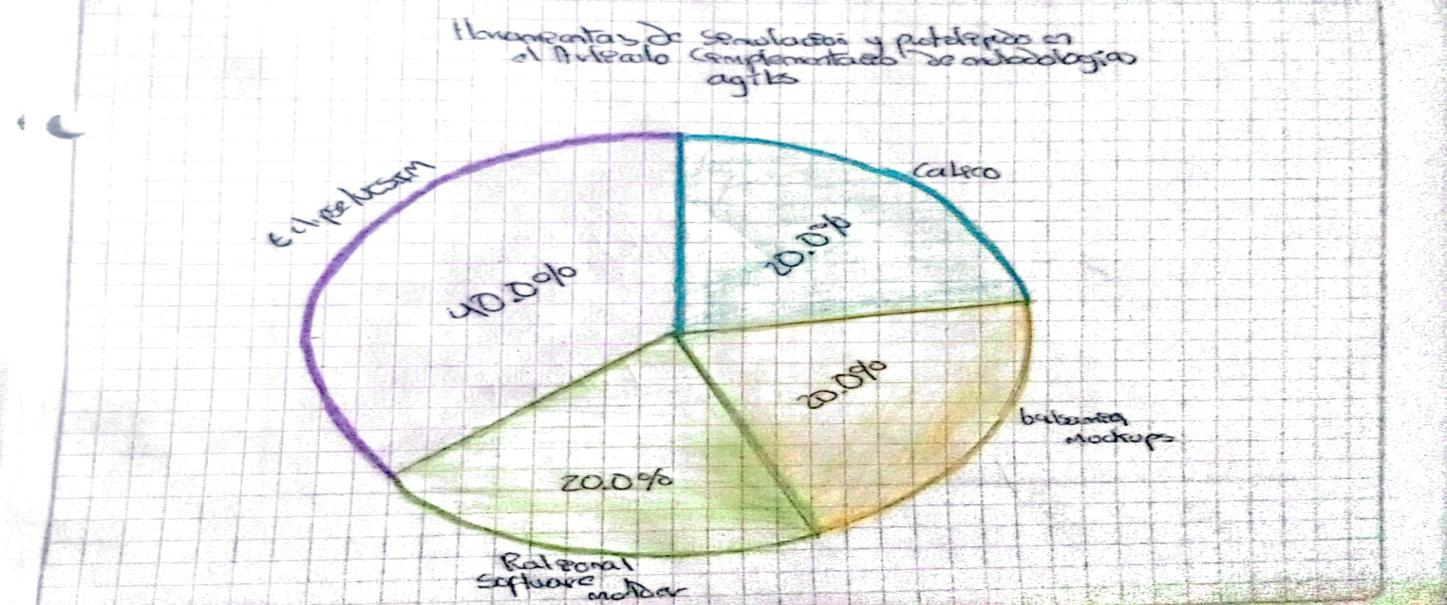 Herramientas de Semulación y prototipado en
el Artículo Complementario de metodologias
agiles
Calico
Eclipse/UCSIM
20.0%
40.0%
20.0%
balsamiq
Mockups
20.0%
Rational
Software